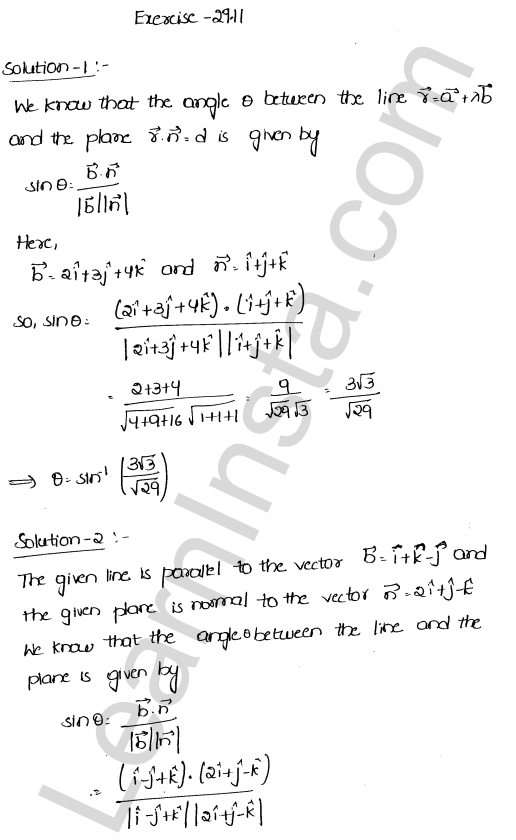 Exercise -29.11
Solution-1:-
We know that the angle θ between the line r⃗=a⃗+λb⃗
and the plane r⃗.n⃗=d is given by
sinθ= b⃗.n⃗ / |b⃗||n⃗|
Here,
b⃗=2î+3ĵ+4k̂ and n⃗=î+ĵ+k̂
So, sinθ= (2î+3ĵ+4k̂).(î+ĵ+k̂) / |2î+3ĵ+4k̂||î+ĵ+k̂|
= 2+3+4 / √4+9+16 √1+1+1 = 9 / √29√3 = 3√3 / √29
⟹ θ=sin⁻¹(3√3 / √29)
Solution-2:-
The given line is parallel to the vector b⃗=i⃗+k⃗-j⃗ and
the given plane is normal to the vector n⃗=2î+ĵ-k̂
We know that the angle θ between the line and the
plane is given by
sinθ= b⃗.n⃗ / |b⃗||n⃗|
= (î-ĵ+k̂).(2î+ĵ-k̂) / |î-ĵ+k̂||2î+ĵ-k̂|
LearnInsta.com